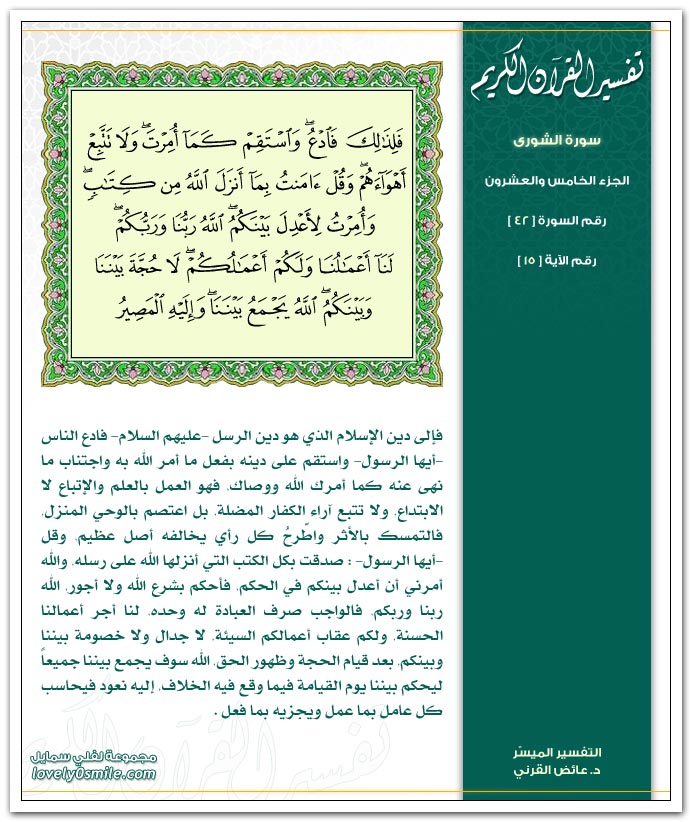 تفسير القرآن الكريم
سورة الشورى
الجزء الخامس والعشرون
رقم السورة [ ٤٢ ]
رقم الآية [ ١٥ ]
فَلِذَٰلِكَ فَٱدْعُ ۖ وَٱسْتَقِمْ كَمَآ أُمِرْتَ ۖ وَلَا تَتَّبِعْ
أَهْوَآءَهُمْ ۖ وَقُلْ ءَامَنتُ بِمَآ أَنزَلَ ٱللَّهُ مِن كِتَٰبٍ ۖ
وَأُمِرْتُ لِأَعْدِلَ بَيْنَكُمُ ۖ ٱللَّهُ رَبُّنَا وَرَبُّكُمْ ۖ
لَنَآ أَعْمَٰلُنَا وَلَكُمْ أَعْمَٰلُكُمْ ۖ لَا حُجَّةَ بَيْنَنَا
وَبَيْنَكُمُ ۖ ٱللَّهُ يَجْمَعُ بَيْنَنَا ۖ وَإِلَيْهِ ٱلْمَصِيرُ
فإلى دين الإسلام الذي هو دين الرسل -عليهم السلام- فادع الناس
-أيها الرسول- واستقم على دينه بفعل ما أمر الله به واجتناب ما
نهى عنه كما أمرك الله ووصاك، فهو العمل بالعلم والإتباع لا
الابتداع، ولا تتبع آراء الكفار المضلة، بل اعتصم بالوحي المنزل،
فالتمسك بالأثر واطّرحُ كل رأي يخالفه أصل عظيم، وقل
-أيها الرسول- : صدقت بكل الكتب التي أنزلها الله على رسله، والله
أمرني أن أعدل بينكم في الحكم، فأحكم بشرع الله ولا أجور، الله
ربنا وربكم، فالواجب صرف العبادة له وحده، لنا أجر أعمالنا
الحسنة، ولكم عقاب أعمالكم السيئة، لا جدال ولا خصومة بيننا
وبينكم، بعد قيام الحجة وظهور الحق، الله سوف يجمع بيننا جميعاً
ليحكم بيننا يوم القيامة فيما وقع فيه الخلاف، إليه نعود فيحاسب
كل عامل بما عمل ويجزيه بما فعل .
تفسير القرآن الكريم
التفسير الميسّر
د. عائض القرني
مجموعة لفلي سمايل
lovely0smile.com